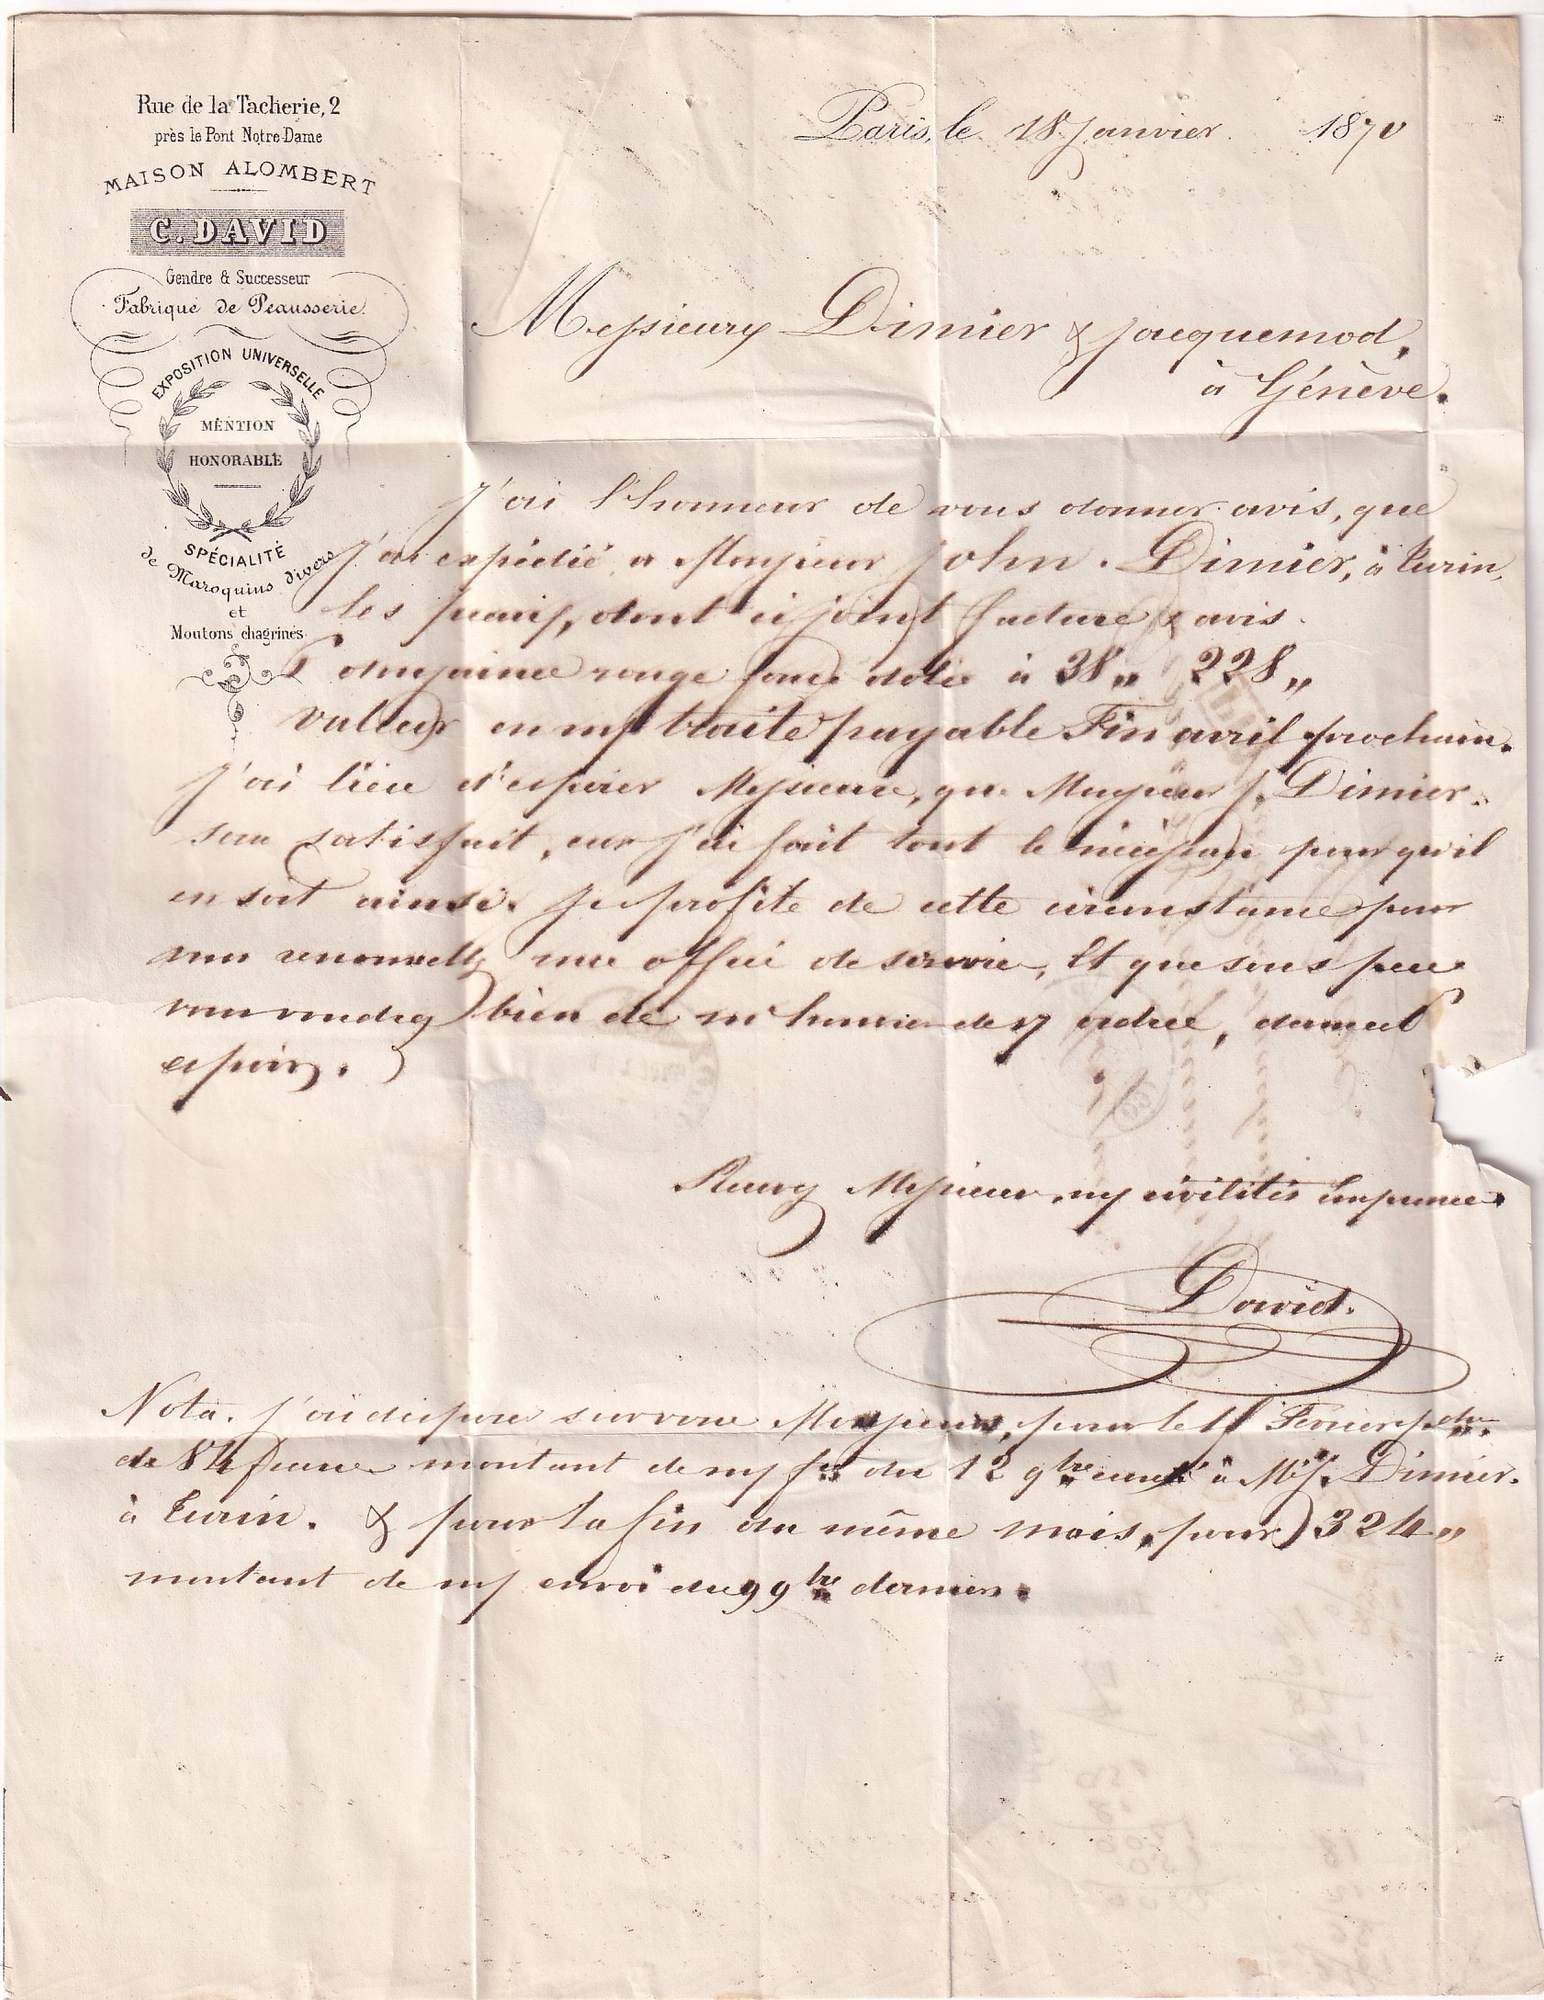 Rue de la Tacherie, 2
près le Pont Notre-Dame
MAISON ALOMBERT
C. DAVID
Gendre & Successeur
Fabrique de Peausserie.
EXPOSITION UNIVERSELLE
MENTION
HONORABLE
SPÉCIALITÉ
de Maroquins divers
et
Moutons chagrinés
Paris, le 18 Janvier 1870
Messieurs Dimier & Jacquemod,
à Génève.
J'ai l'honneur de vous donner avis, que
J'ai expédié a Monsieur John. Dimier, à Turin,
les peaux, dont ci joint facture & avis.
6 douzaines rouge foncé à 38 „ 228 „
valeur en ms traite payable Fin avril prochain.
J'ai lieu d'espérer Messieurs, que Monsieur J. Dimier.
sera satisfait, car j'ai fait tout le nécessaire pour qu'il
en soit ainsi. Je profite de cette circonstance pour
vous renouveller mes offres de service, Et que sous peu
vous voudrez bien de m'honorer de vs ordres, dans cet
espoir.
Recevez Messieurs, mes civilités Empressées
David.
Nota. J'ai disposé sur vous Messieurs, pour le 15 Fevrier pchn.
de 84 francs montant de ms fre du 12 9bre à Mr J. Dimier.
à Turin. & pour la fin du même mois, pour 324 „
montant de ms envoi du 9 9bre dernier.